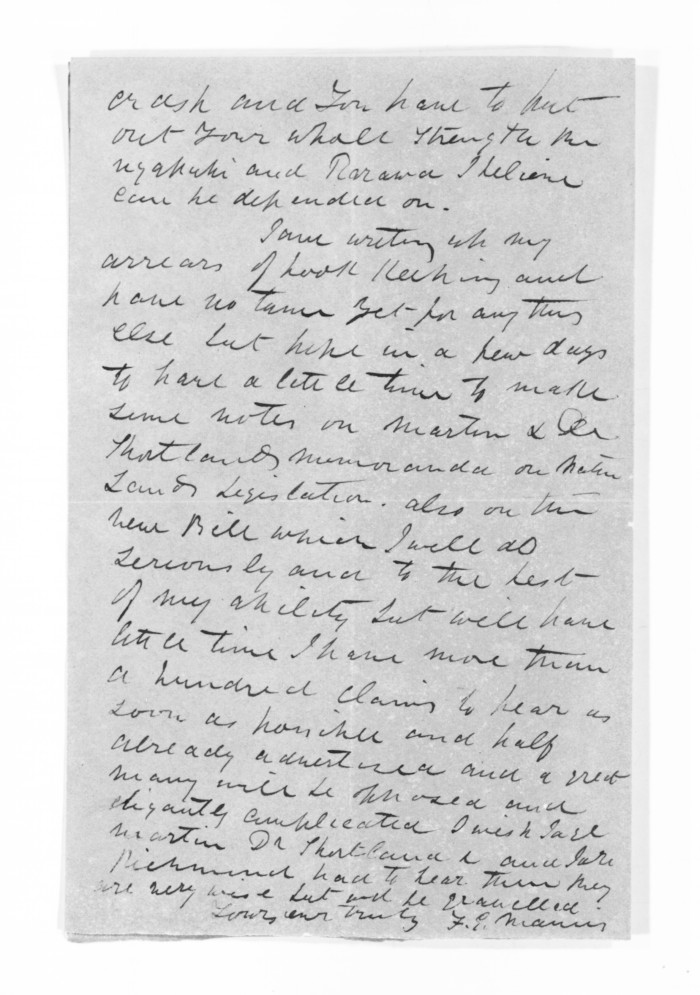 crash and You have to put
out Your whole strength the
ngapuhi and Rarawa I believe
can be depended on.
I am writing up my
arrears of book keeping and
have no time yet for anything
else but hope in a few days
to have a little time to make
some notes on Martin & Dr
Shortlands memoranda on Native
Lands Legislation. also on the
new Bill which I will do
seriously and to the best
of my ability but will have
little time I have more than
a hundred claims to hear as
soon as possible and half
already advertised and a great
many will be opposed and
elegantly complicated I wish
Martin Dr Shortland and
Richmond had to hear them they
are very wise but wd be gravelled.
Yours ever truly F.E. Maning